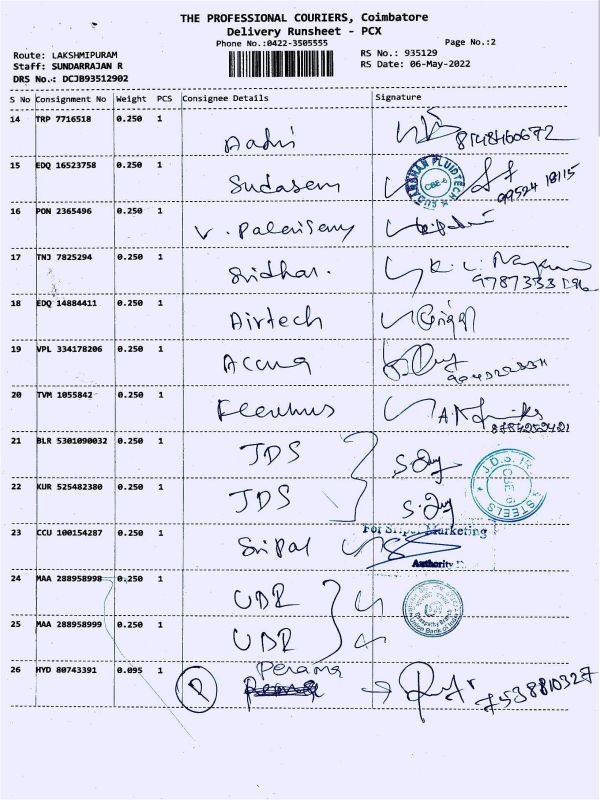 THE PROFESSIONAL COURIERS, Coimbatore
Delivery Runsheet - PCX
Phone No.:0422-3505555
Page No.:2
Route: LAKSHMIPURAM
RS No.: 935129
Staff: SUNDARRAJAN R
RS Date: 06-May-2022
DRS No.: DCJB93512902
S No Consignment No Weight PCS Consignee Details Signature
14 TRP 7716518 0.250 1 Aadhi 8148460672
15 EDQ 16523758 0.250 1 Sudasem 99524 18115
16 PON 2365496 0.250 1 V. Palanisamy
17 TNJ 7825294 0.250 1 Sridhar.
18 EDQ 14884411 0.250 1 Airtech
19 VPL 334178206 0.250 1
20 TVM 1055842 0.250 1
21 BLR 5301090032 0.250 1 JDS
22 KUR 525482380 0.250 1 JDS
23 CCU 100154287 0.250 1 Sripal For Sripal Marketing
24 MAA 288958998 0.250 1 UBR
25 MAA 288958999 0.250 1 UBR
26 HYD 80743391 0.095 1 P Perama 7538810327